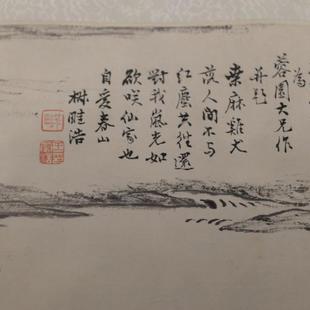 為
蓉園大兄作
并題
桑麻雞犬
人間不与
紅塵共往還
對我嵐光如
欲咲仙家也
自愛春山
樹浩